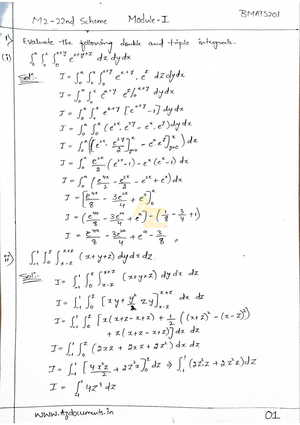 M2-22nd Scheme Module-I BMATS201
1) Evaluate the following double and triple integrals.
(i) ∫₀ᵃ ∫₀ˣ ∫₀ˣ⁺ʸ e^(x+y+z) dz dy dx
Sol: I = ∫₀ᵃ ∫₀ˣ ∫₀ˣ⁺ʸ e^(x+y) . e^z dz dy dx
I = ∫₀ᵃ ∫₀ˣ e^(x+y) e^z]₀^(x+y) dy dx
I = ∫₀ᵃ ∫₀ˣ e^(x+y) [e^(x+y) - 1] dy dx
I = ∫₀ᵃ ∫₀ˣ (e^(2x) . e^(2y) - e^x . e^y) dy dx
I = ∫₀ᵃ {[e^(2x) . e^(2y)/2]₀ˣ - e^x e^y]₀ˣ} dx
I = ∫₀ᵃ e^(2x)/2 (e^(2x) - 1) - e^x (e^x - 1) dx
I = ∫₀ᵃ (e^(4x)/2 - e^(2x)/2 - e^(2x) + e^x) dx
I = [e^(4x)/8 - 3e^(2x)/4 + e^x]₀ᵃ
I = (e^(4a)/8 - 3e^(2a)/4 + e^a) - (1/8 - 3/4 + 1)
I = e^(4a)/8 - 3e^(2a)/4 + e^a - 3/8
ii) ∫₋₁¹ ∫₀ᶻ ∫ₓ₋z^(x+z) (x+y+z) dy dx dz.
Sol: I = ∫₋₁¹ ∫₀ᶻ ∫ₓ₋z^(x+z) (x+y+z) dy dx dz
I = ∫₋₁¹ ∫₀ᶻ [xy + y²/2 + zy]ₓ₋z^(x+z) dx dz
I = ∫₋₁¹ ∫₀ᶻ [x(x+z-x+z) + 1/2 ((x+z)² - (x-z)²)
+ z(x+z-x+z)] dx dz
I = ∫₋₁¹ ∫₀ᶻ (2xz + 2xz + 2z²) dx dz
I = ∫₋₁¹ [4x²z/2 + 2z²x]₀ᶻ dz ⇒ ∫₋₁¹ (2z²z + 2z²x) dz
I = ∫₋₁¹ 4z³ dz
www.azdocuments.in 01